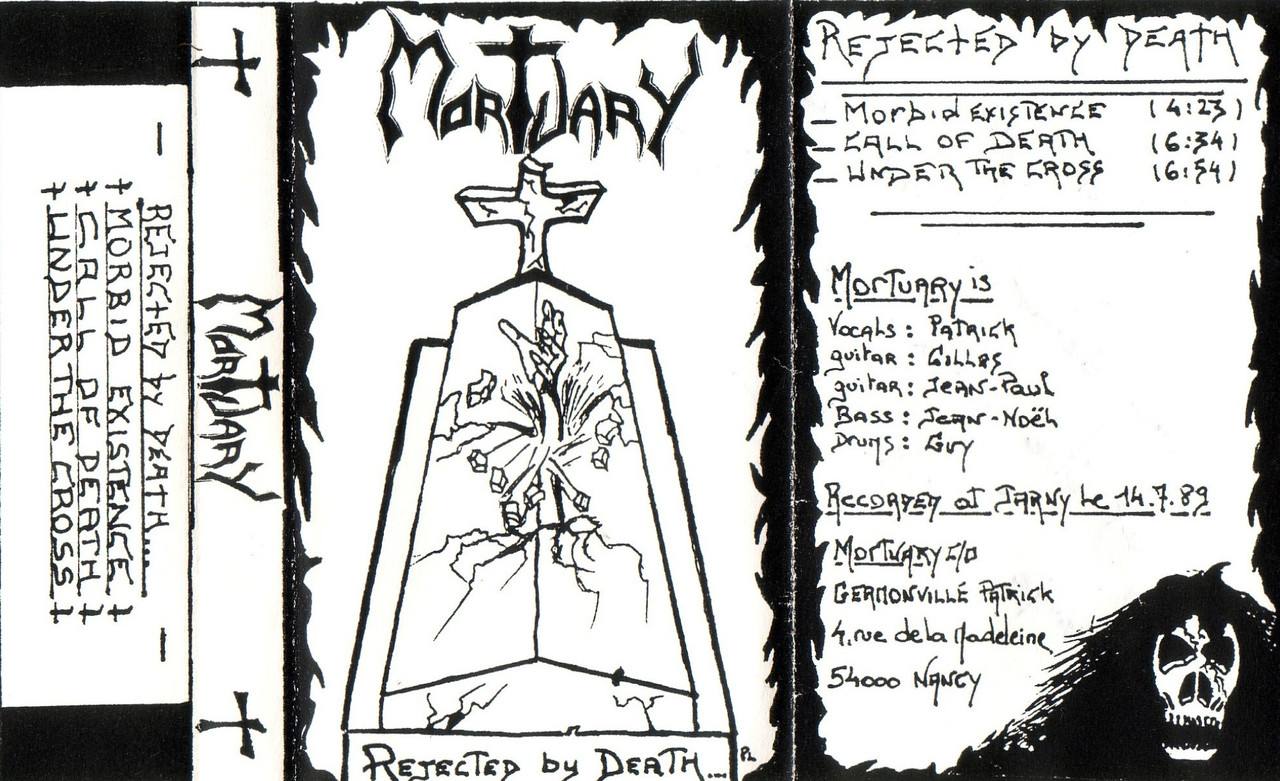 REJECTED by DEATH....
MORBID EXISTENCE
CALL OF DEATH
UNDER THE CROSS
MORTUARY
MORTUARY
REJECTED by DEATH...
PL
REJECTED by DEATH
_ MORBID EXISTENCE (4:23)
_ CALL OF DEATH (6:34)
_ UNDER THE CROSS (6:54)
MORTUARY is
Vocals : PATRICK
guitar : GILLES
guitar : JEAN-PAUL
BASS : JEAN-NOËL
DRUMS : GUY
RECORDED at JARNY Le 14.7.89
MORTUARY C/O
GERMONVILLE PATRICK
4, rue de la Madeleine
54000 NANCY